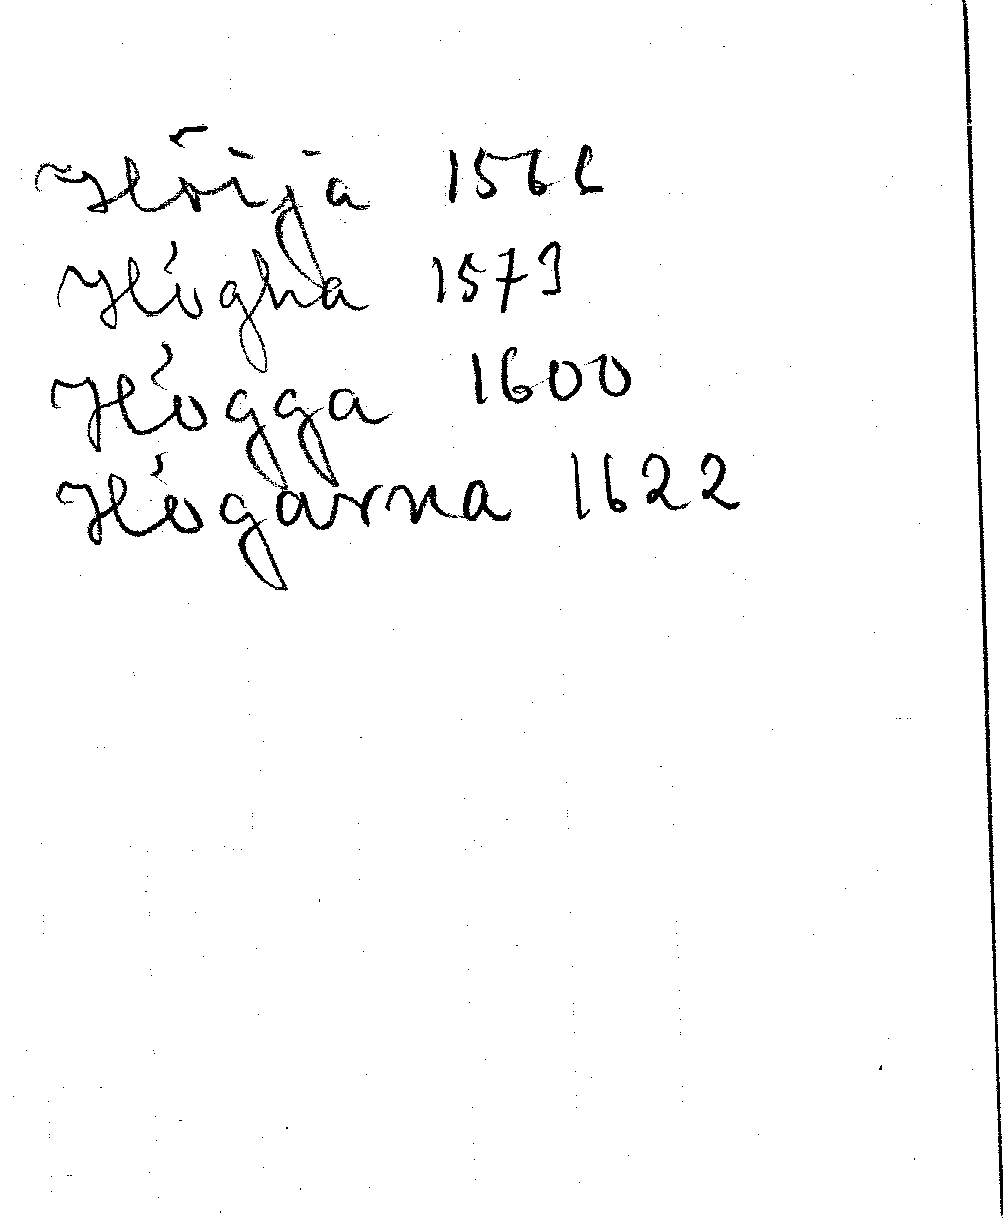 Höija 1566
Högha 1579
Högga 1600
Högarna 1622